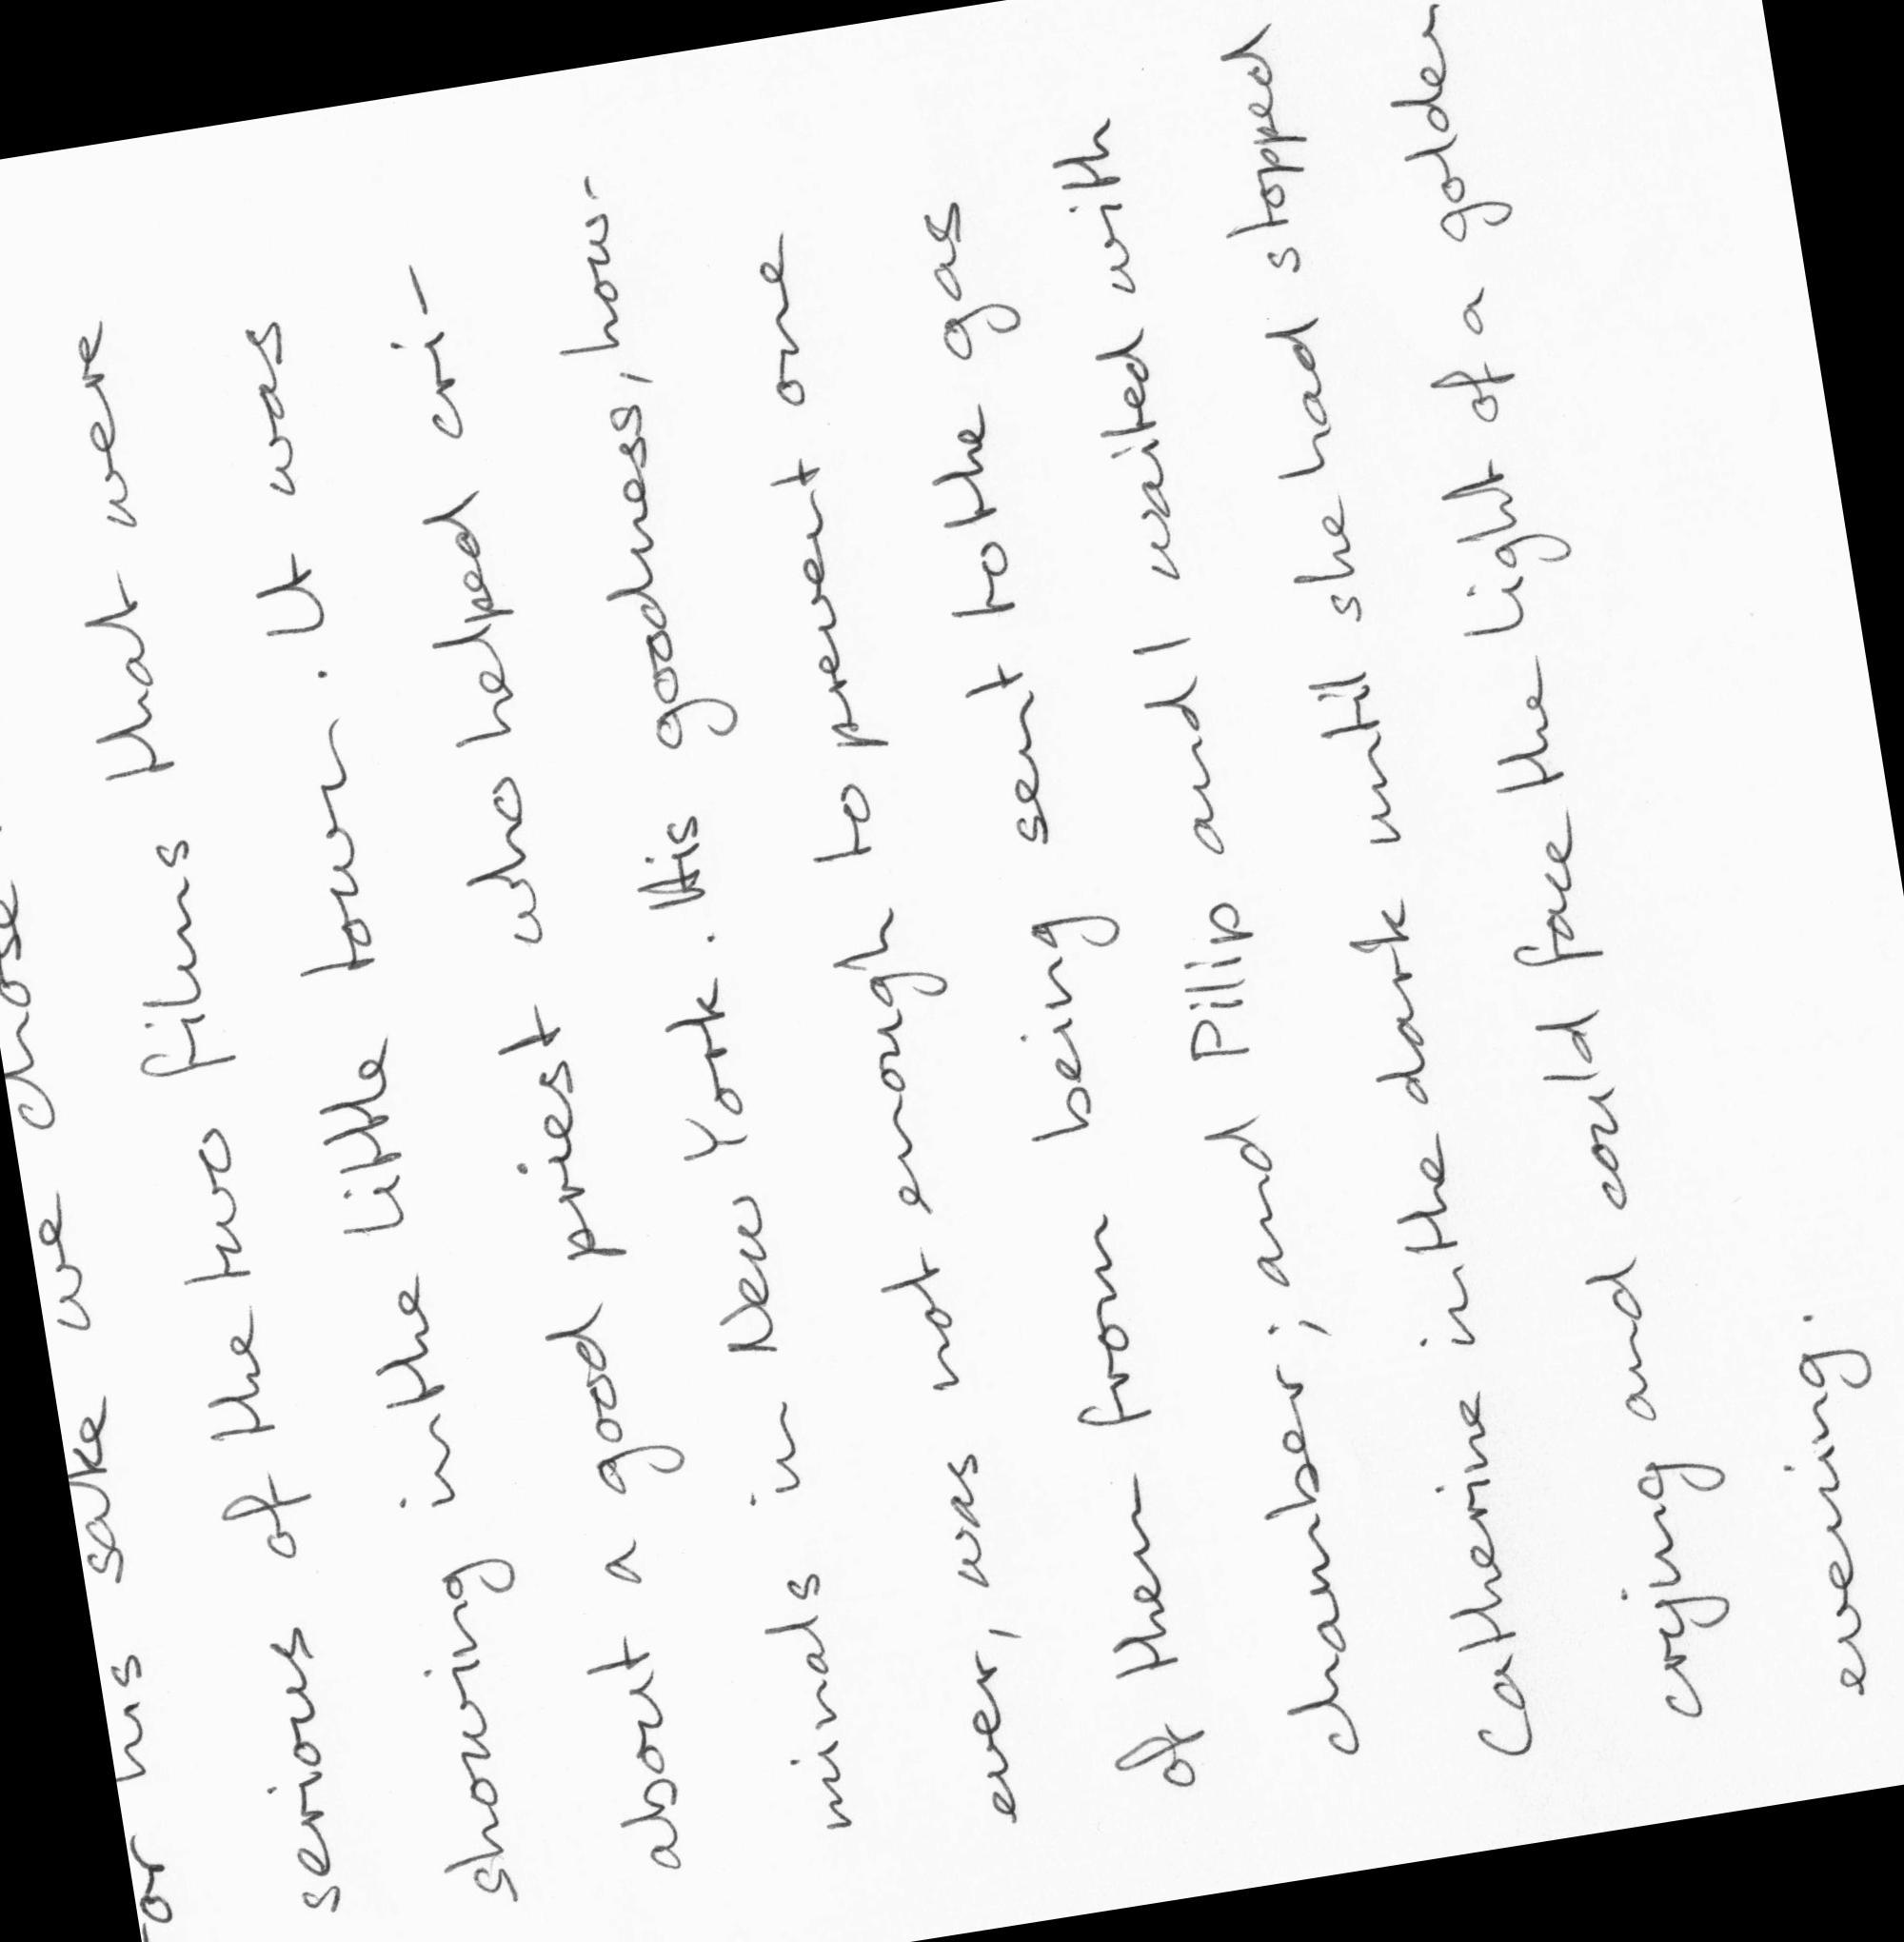 or his sake we chose
serious of the two films that were
showing in the little town. It was
about a good priest who helped cri-
minals in New York. His goodness, how-
ever, was not enough to prevent one
of them from being sent to the gas
chamber; and Pillip and I waited with
Catherine in the dark until she had stopped
crying and could face the light of a golden
evening.